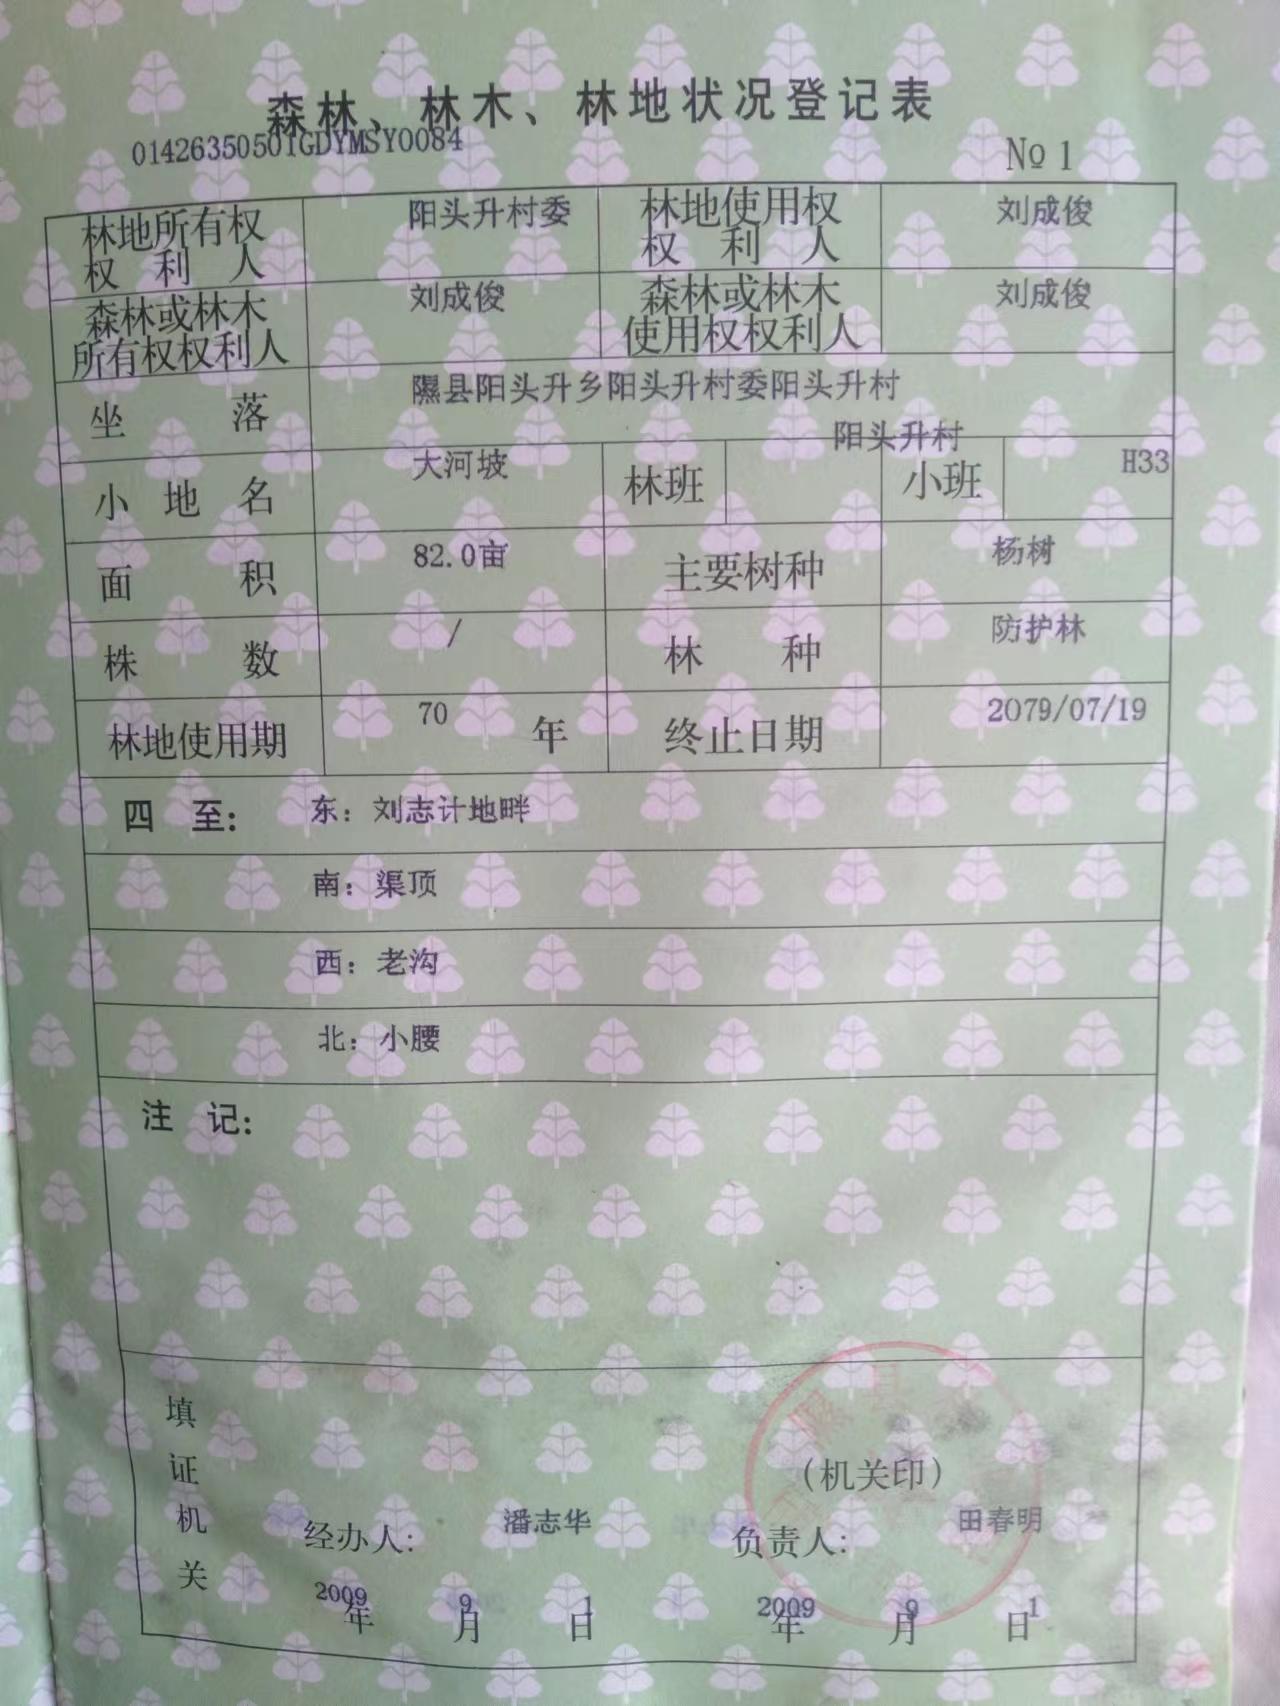 森林、林木、林地状况登记表
01426350501GDYMSY0084
№ 1
林地所有权权利人 阳头升村委 林地使用权权利人 刘成俊
森林或林木所有权权利人 刘成俊 森林或林木使用权权利人 刘成俊
坐落 隰县阳头升乡阳头升村委阳头升村
阳头升村
小地名 大河坡 林班 小班 H33
面积 82.0亩 主要树种 杨树
株数 / 林种 防护林
林地使用期 70 年 终止日期 2079/07/19
四至: 东: 刘志计地畔
南: 渠顶
西: 老沟
北: 小腰
注记:
填证机关
(机关印)
经办人: 潘志华 负责人: 田春明
2009年 9月 1日 2009年 9月 1日